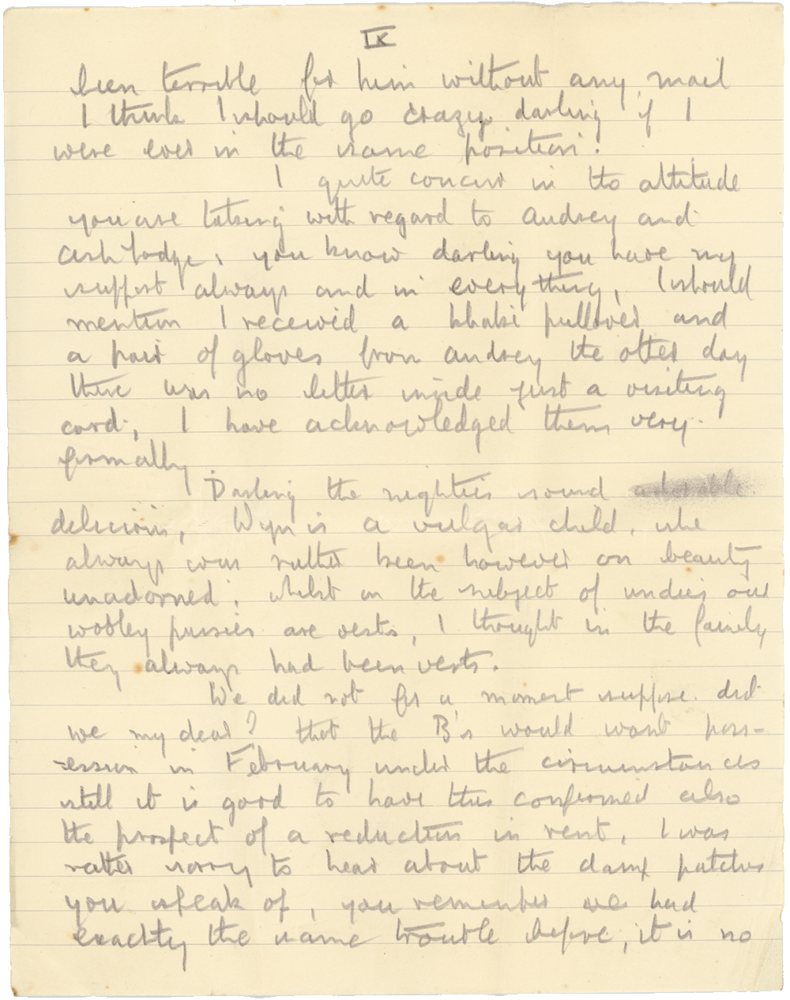 IX
been terrible for him without any mail
I think I should go crazy darling if I
were ever in the same position.
I quite concur in the attitude
you are taking with regard to Audrey and
Ash Lodge, you know darling you have my
support always and in everything, I should
mention I received a khaki pullover and
a pair of gloves from Audrey the other day
there was no letter inside just a visiting
card, I have acknowledged them very
formally.
Darling the nighties sound
delicious, Wyn is a vulgar child, she
always was rather keen however on beauty
unadorned, whilst on the subject of undies our
woolley pussies are vests, I thought in the family
they always had been vests.
We did not for a moment suppose did
we my dear? that the B's would want poss-
ession in February under the circumstances
still it is good to have this confirmed also
the prospect of a reduction in rent, I was
rather sorry to hear about the damp patches
you speak of, you remember we had
exactly the same trouble before, it is no